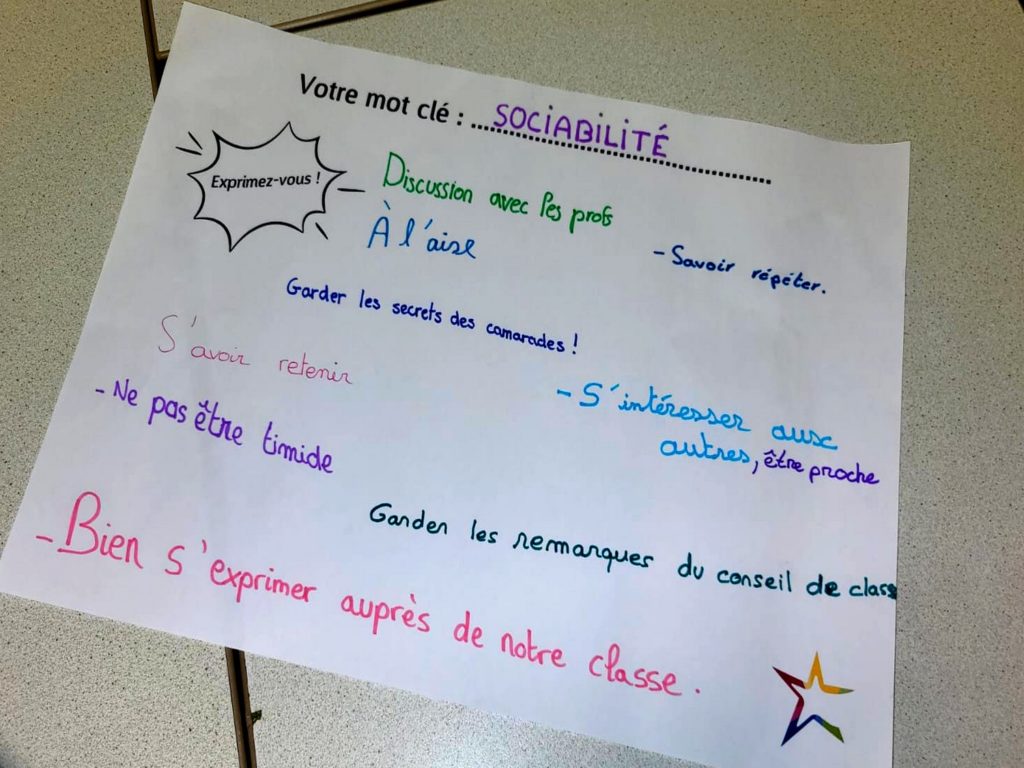 Votre mot clé : SOCIABILITÉ
Exprimez-vous !
Discussion avec les profs
À l'aise
- Savoir répéter.
Garder les secrets des camarades !
S'avoir retenir
- Ne pas être timide
- S'intéresser aux
autres, être proche
Garder les remarques du conseil de class
- Bien s'exprimer auprès de notre classe.